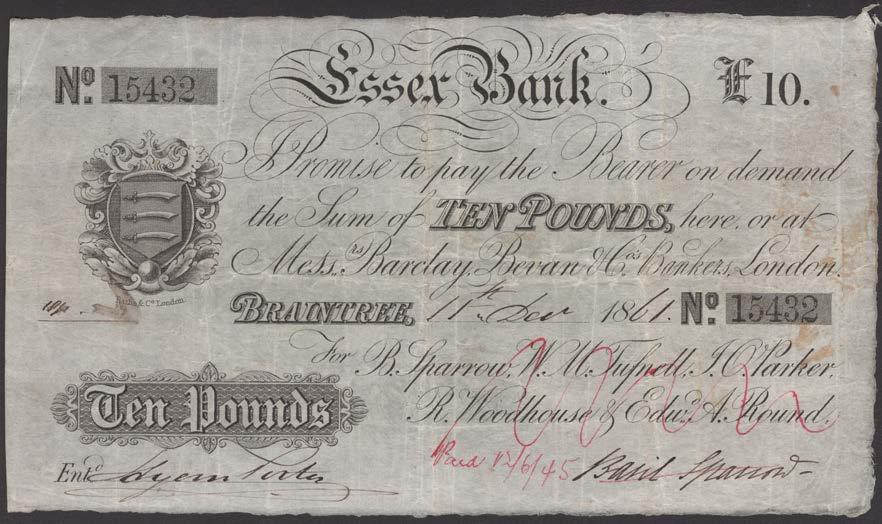 No. 15432
Essex Bank.
£10.
I Promise to pay the Bearer on demand
the Sum of TEN POUNDS, here, or at
Messrs. Barclay, Bevan & Co's. Bankers, London.
& Co. London.
BRAINTREE, 11th Decr 1861. No. 15432
For B. Sparrow, W. M. Tufnell, J. O. Parker,
R. Woodhouse & Edwd. A. Round.
Ten Pounds
Paid 12/6/45
Entd.
Basil Sparrow